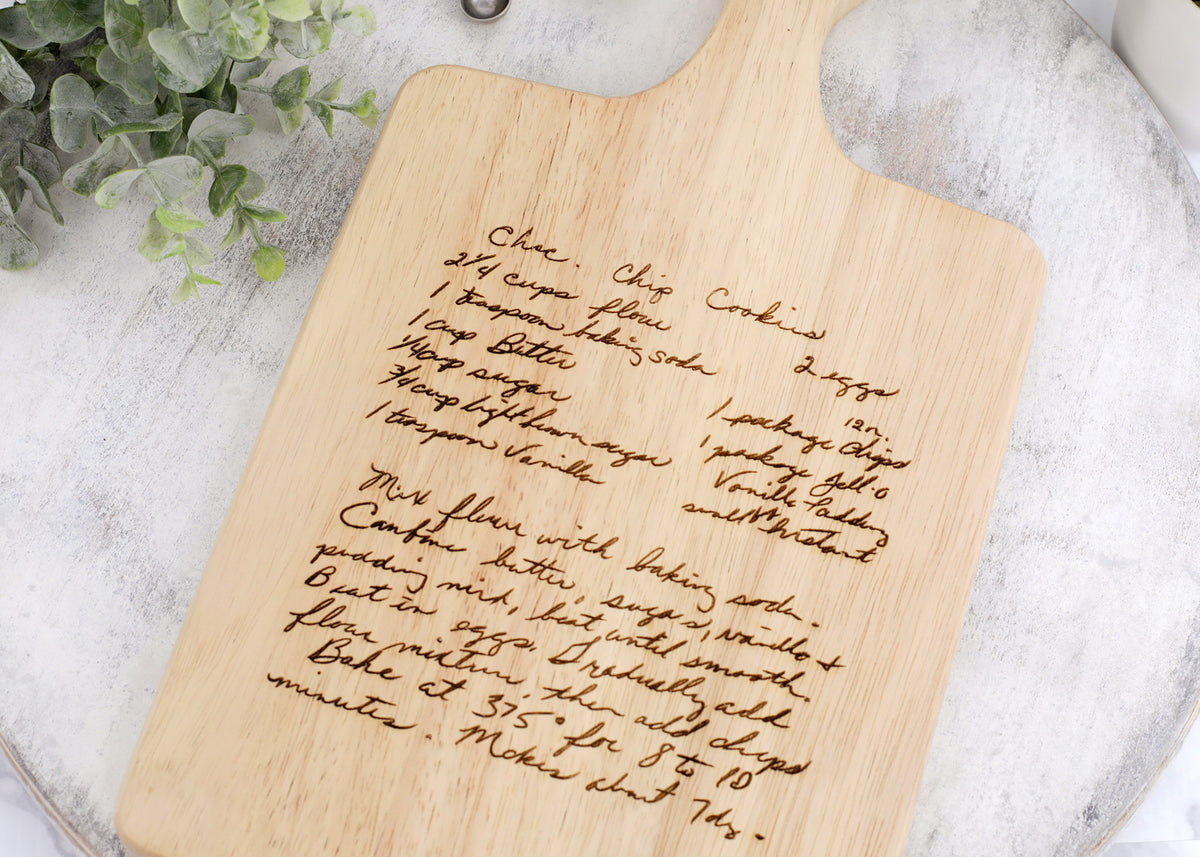 Choc. Chip Cookies
2 1/4 cups flour
1 teaspoon baking soda
1 cup Butter
1/4 cup sugar
3/4 cup light brown sugar
1 teaspoon Vanilla
2 eggs
12 oz.
1 package chips
1 package Jell-O
Vanilla Pudding
small Instant
Mix flour with baking soda.
Combine butter, sugars, vanilla +
pudding mix, beat until smooth.
Beat in eggs. Gradually add
flour mixture, then add chips
Bake at 375° for 8 to 10
minutes. Makes about 7dz.